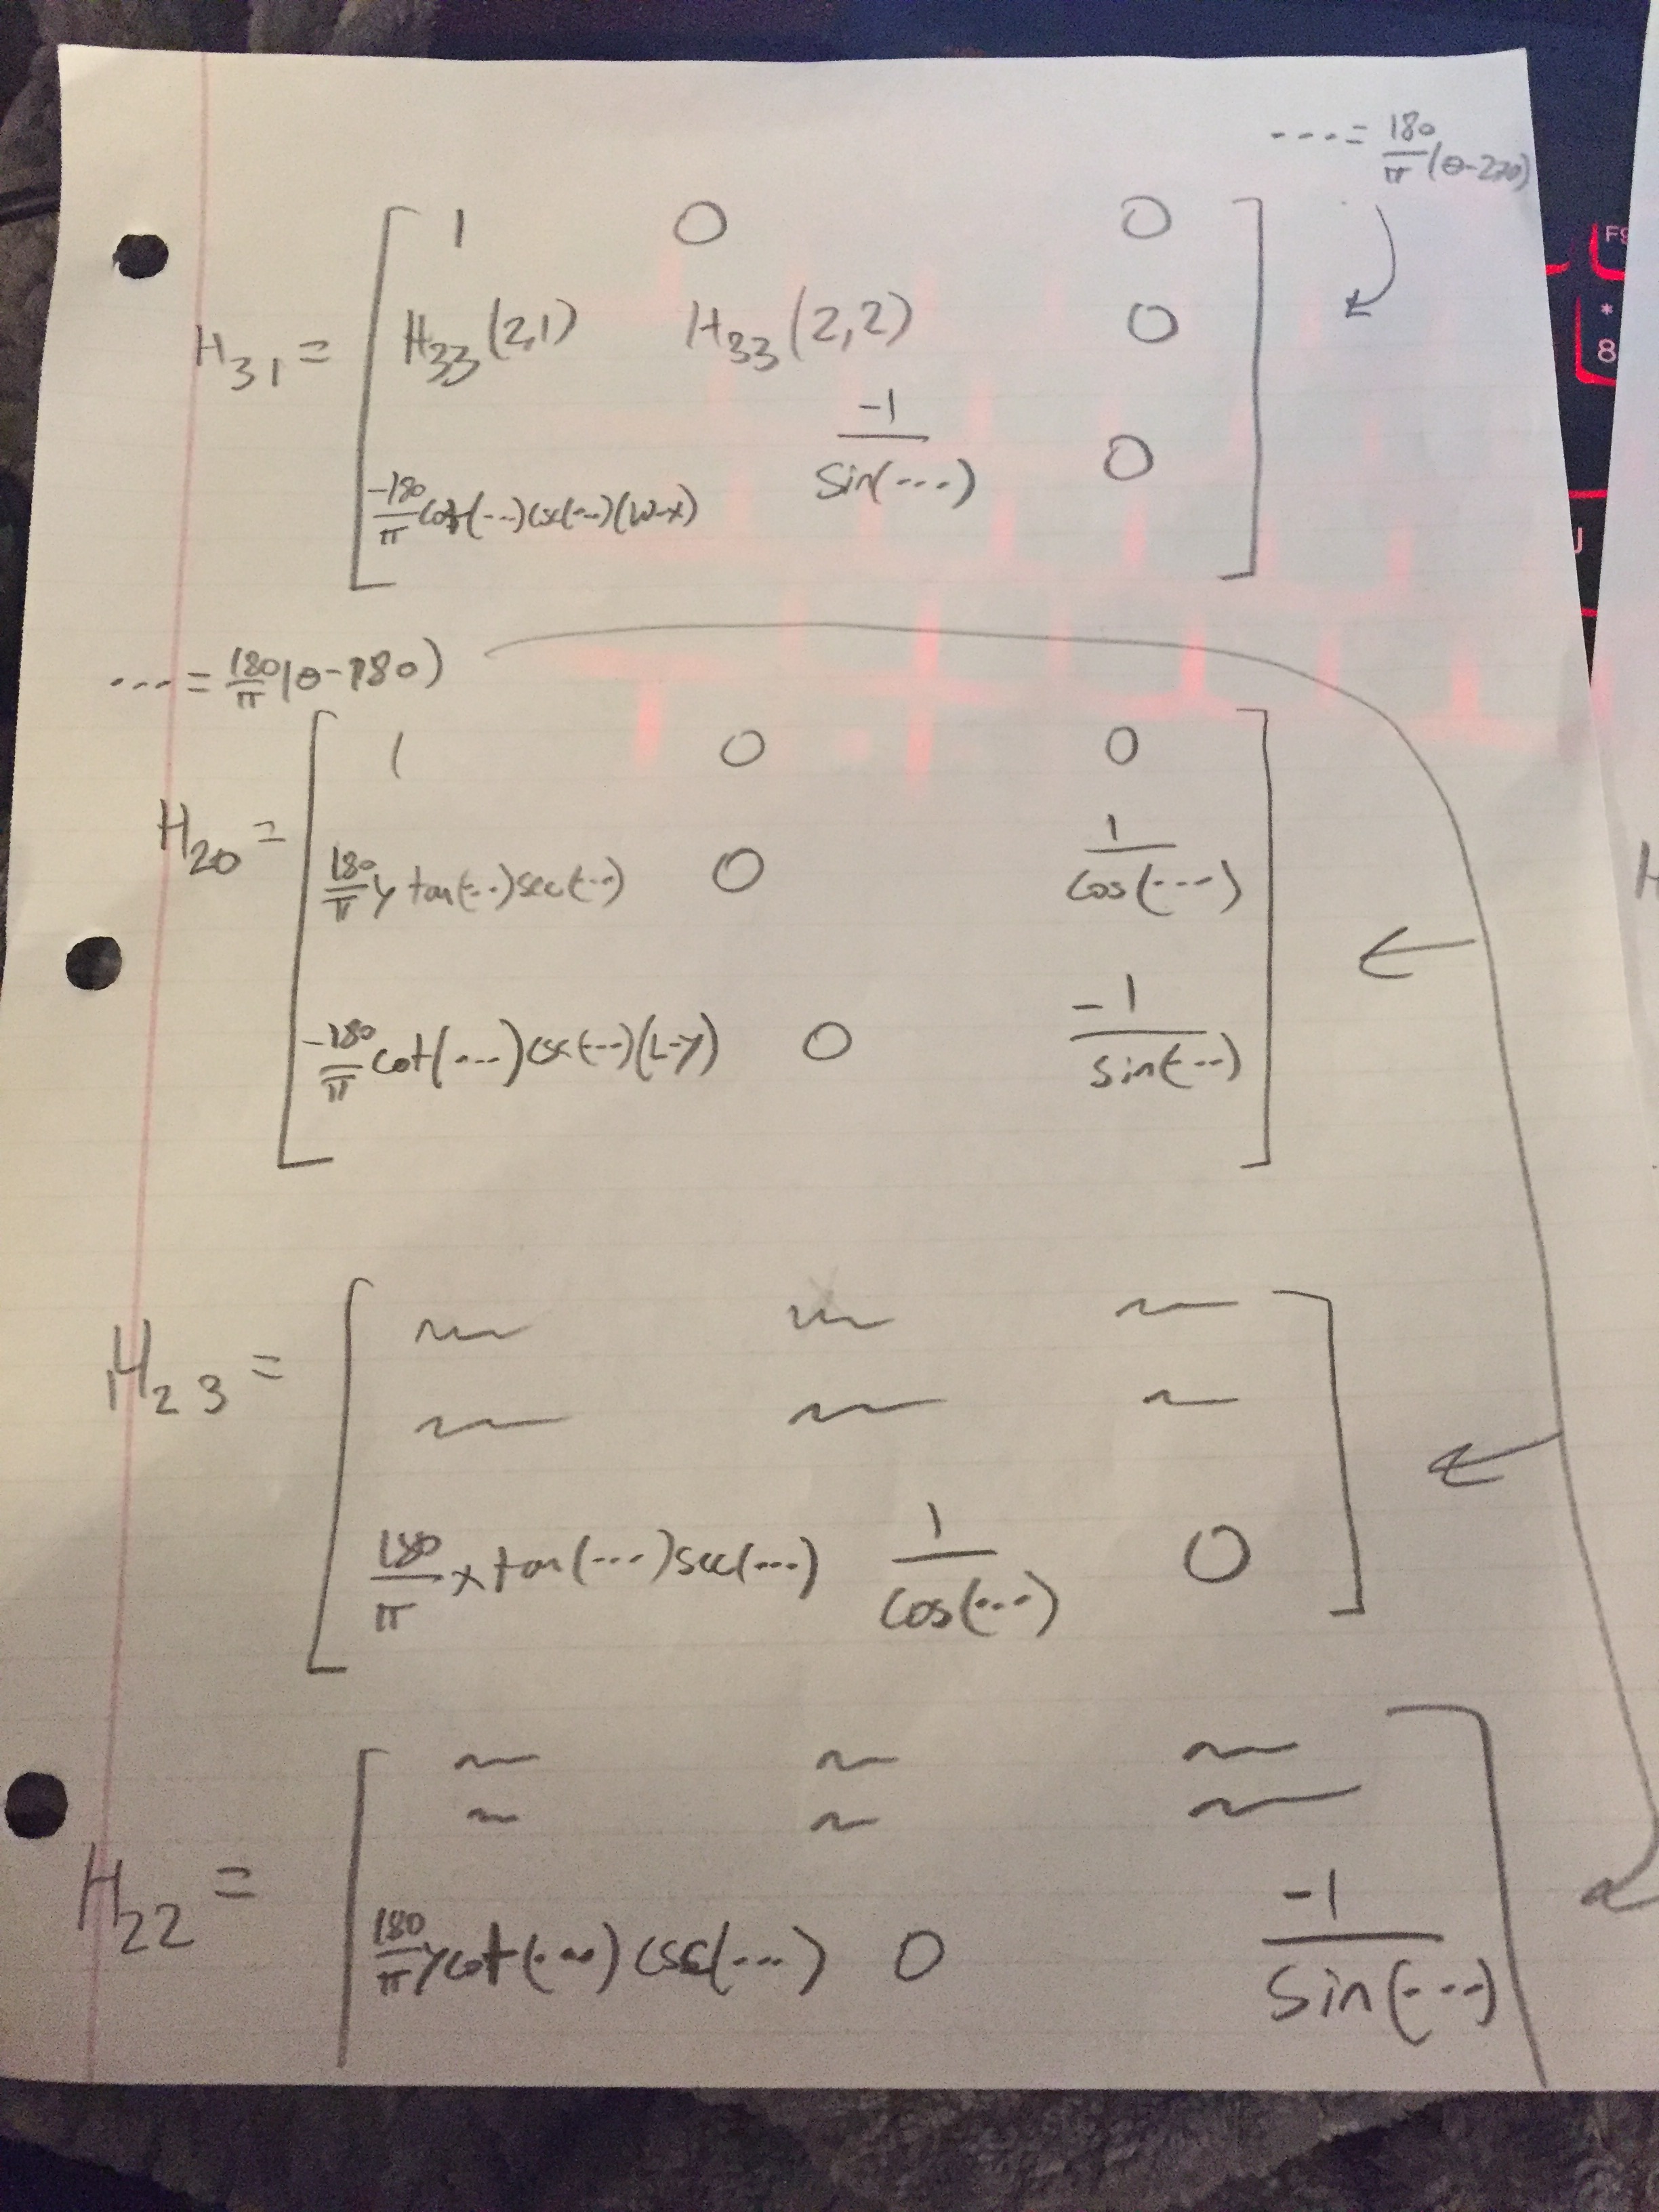 ---- = 180/π (θ-270)
1 0 0
H₃₁ = H₃₃(2,1) H₃₃(2,2) 0
-180/π cot(---)csc(---)(W-x) -1/sin(---) 0
---- = 180/π (θ-180)
1 0 0
H₂₀ = 180/π y tan(---)sec(---) 0 1/cos(----)
-180/π cot(----)csc(---)(L-y) 0 -1/sin(---)
H₂₃ = ~ ~ ~
~ ~ ~
180/π x tan(---)sec(---) 1/cos(---) 0
~ ~ ~
~ ~ ~
H₂₂ = 180/π y cot(---) csc(---) 0 -1/sin(---)
F9
*
8
U
H